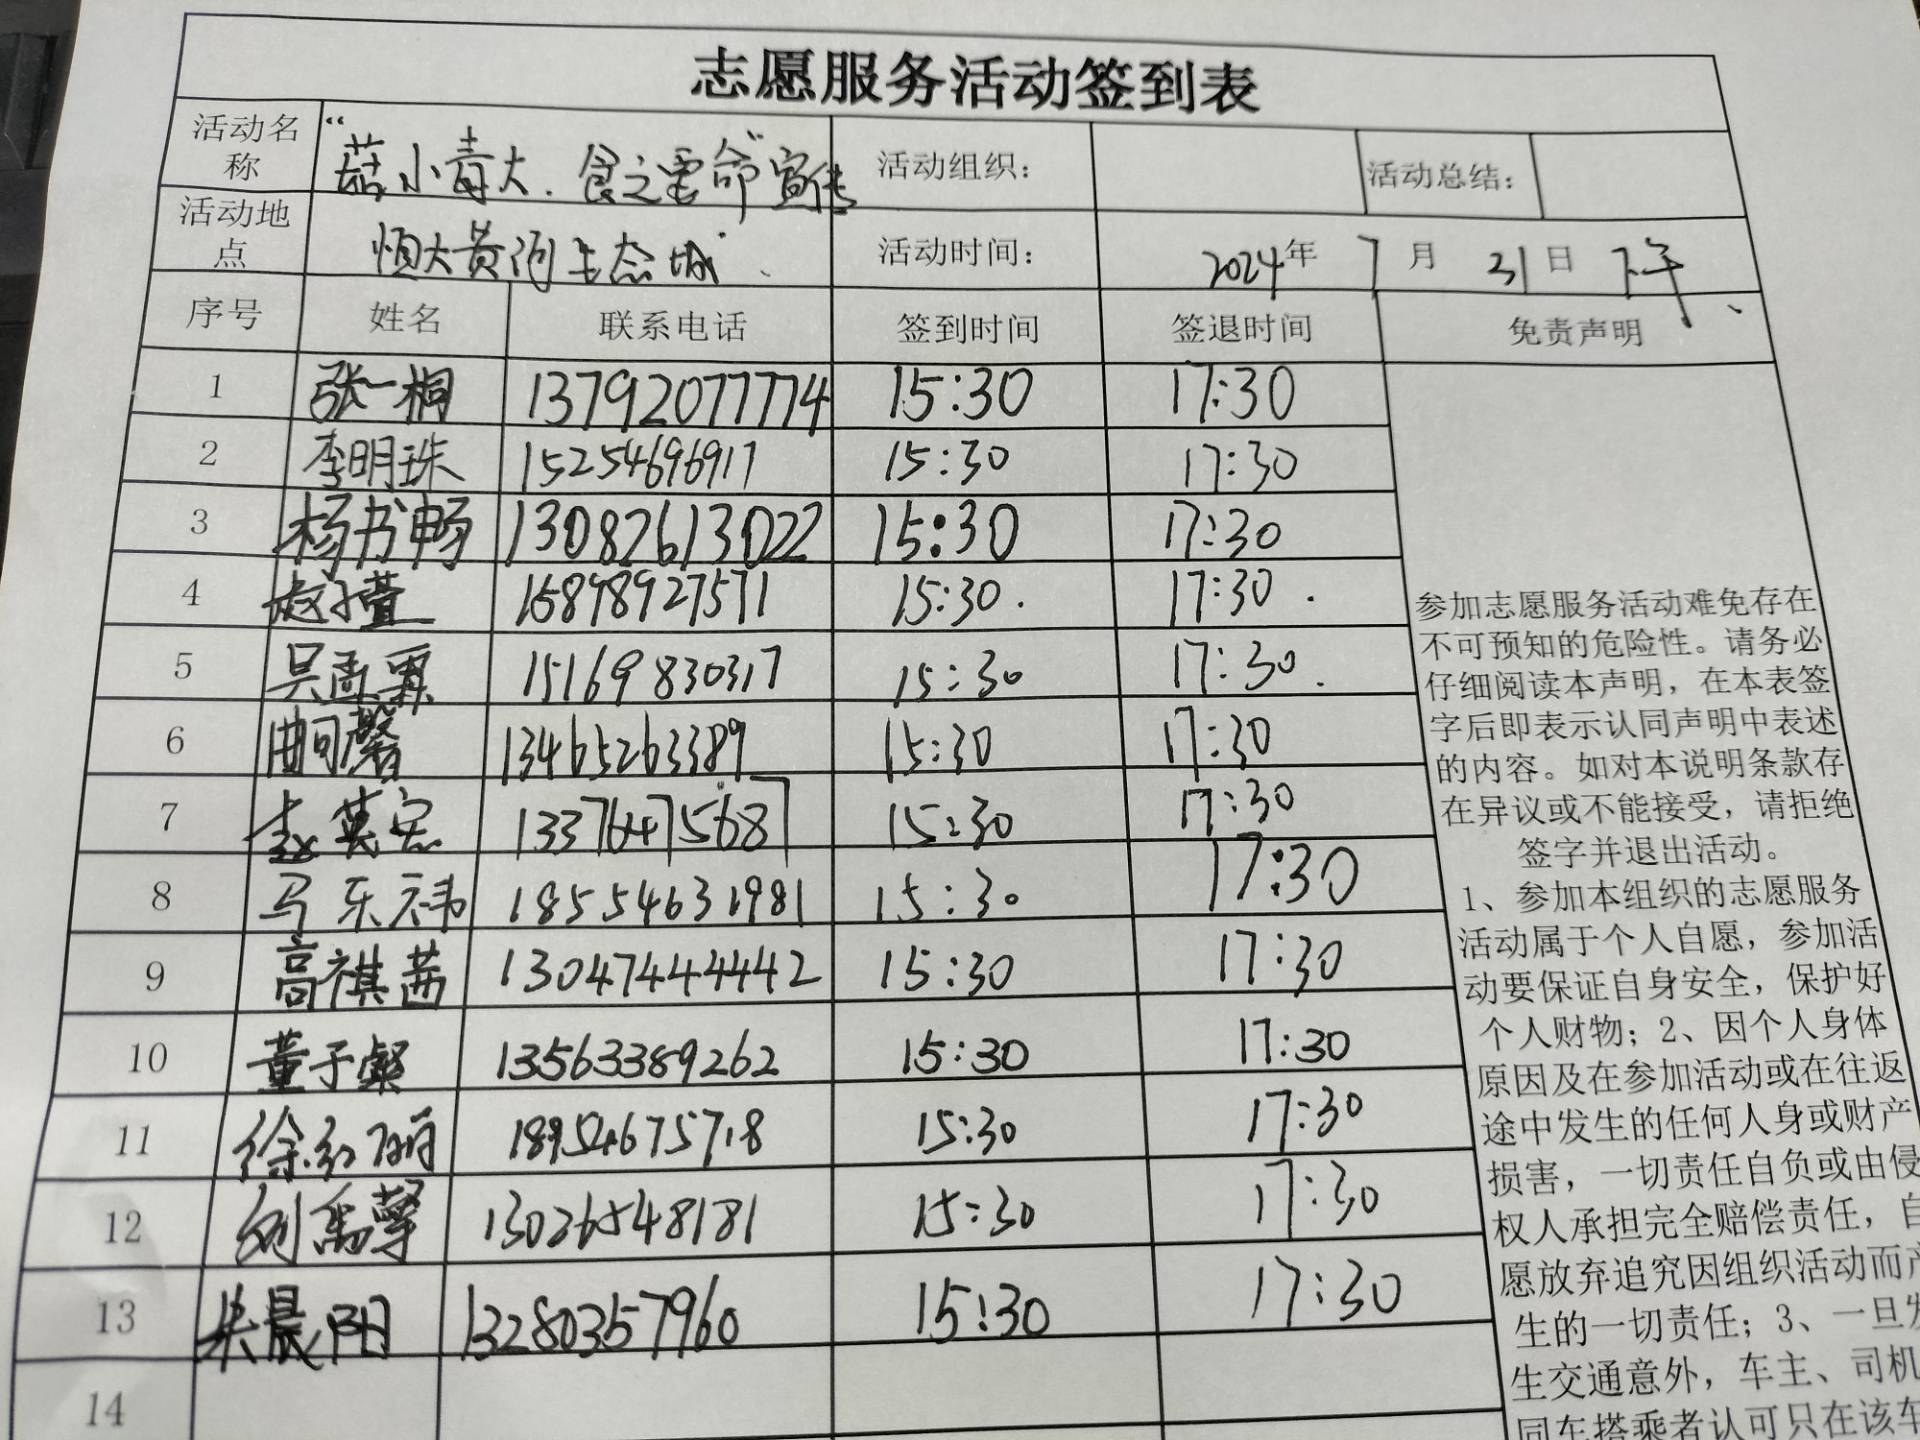 志愿服务活动签到表
活动名称 “菇小毒大.食之要命”宣传 活动组织: 活动总结:
活动地点 恒大黄河生态城 活动时间: 2024年 7月 31日 下午
序号 姓名 联系电话 签到时间 签退时间 免责声明
1 张一桐 13792077774 15:30 17:30
2 李明珠 15254696917 15:30 17:30
3 杨书畅 13082613022 15:30 17:30
4 赵子萱 15:30. 17:30.
5 15169830317 15:30 17:30.
6 曲可馨 13465263389 15:30 17:30
7 赵英宏 13376475687 15:30 17:30
8 马乐祎 18554631981 15:30 17:30
9 高祺茜 13047444442 15:30 17:30
10 董于粲 13563389262 15:30 17:30
11 徐红丽 18954675718 15:30 17:30
12 刘禹馨 13026548181 15:30 17:30
13 晨阳 13280357960 15:30 17:30
14
参加志愿服务活动难免存在
不可预知的危险性。请务必
仔细阅读本声明，在本表签
字后即表示认同声明中表述
的内容。如对本说明条款存
在异议或不能接受，请拒绝
签字并退出活动。
1、参加本组织的志愿服务
活动属于个人自愿，参加活
动要保证自身安全，保护好
个人财物；2、因个人身体
原因及在参加活动或在往返
途中发生的任何人身或财产
损害，一切责任自负或由侵
权人承担完全赔偿责任，自
愿放弃追究因组织活动而产
生的一切责任；3、一旦发
生交通意外，车主、司机
同车搭乘者认可只在该车